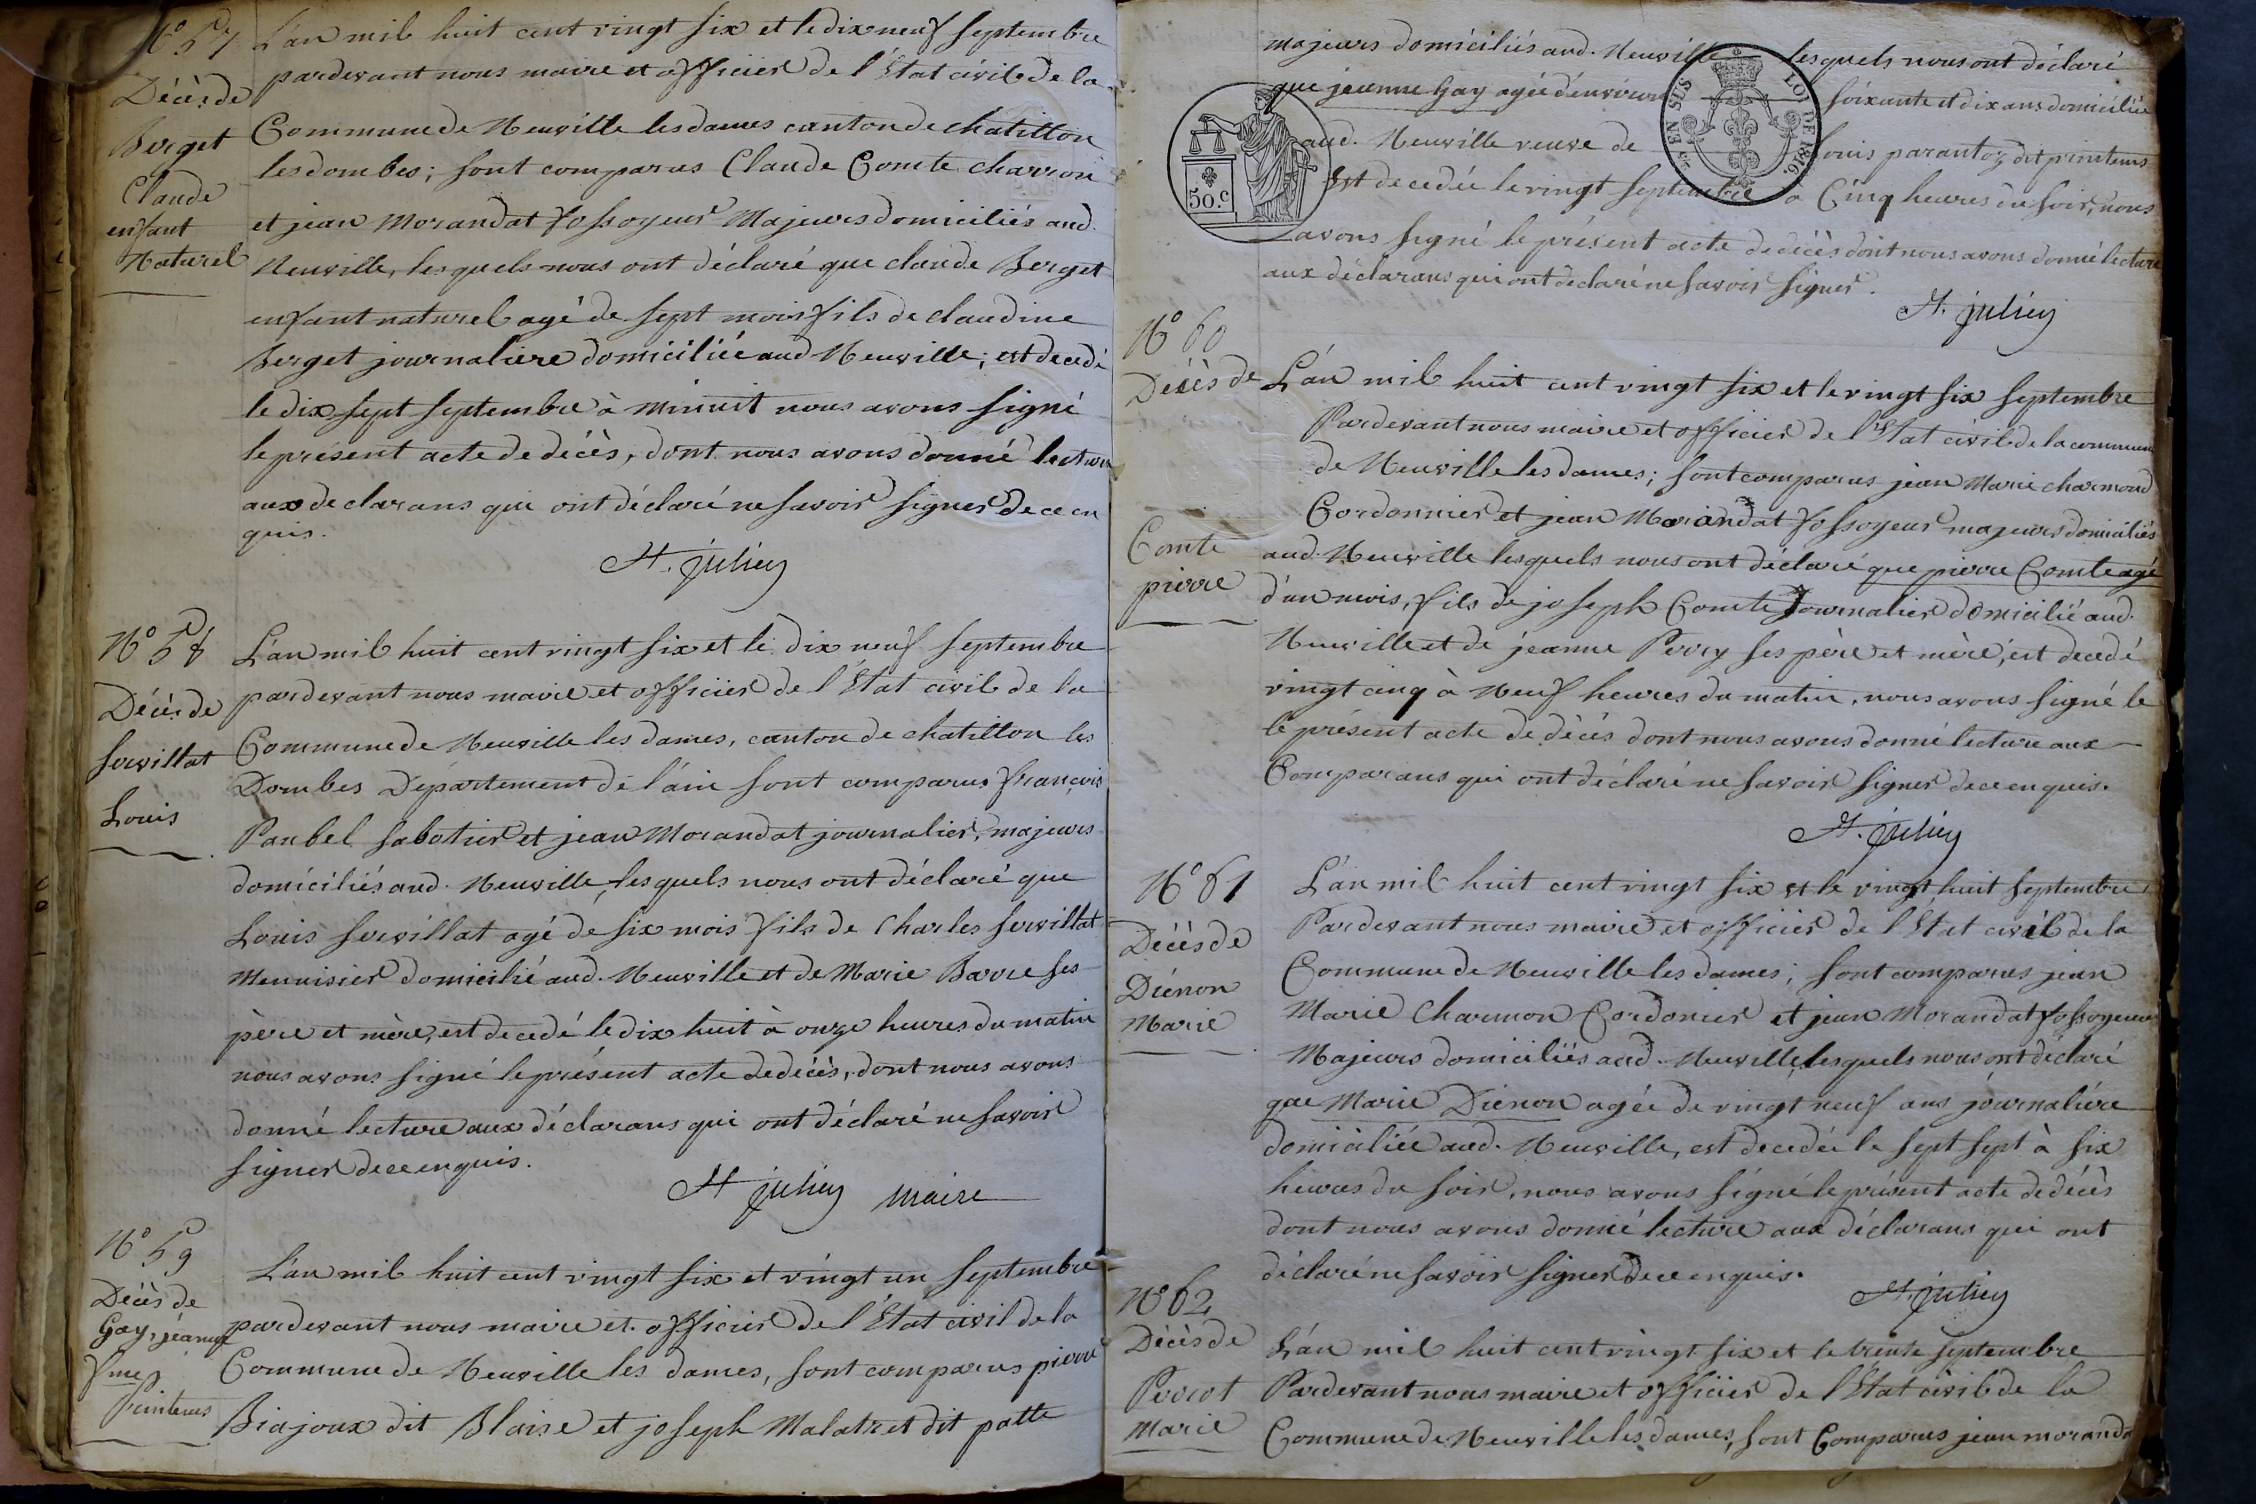 N° 57
Décès de
Berget
Claude
enfant
Naturel
L'an mil huit cent vingt six et le dix neuf septembre
pardevant nous maire et officier de l'État civil de la
Commune de Neuville les dames canton de chatillon
les dombes; sont comparus Claude Comte charron
et jean Morandat fossoyeur Majeurs domiciliés aud.
Neuville, lesquels nous ont déclaré que claude Berget
enfant naturel agé de sept mois fils de claudine
Berget journaliere domiciliée aud Neuville; est decedé
le dix sept septembre à minuit nous avons signé
le présent acte de décès, dont nous avons donné lecture
aux declarans qui ont déclaré ne savoir signer de ce en
quis.
St. julien
N° 58
Décès de
servillat
Louis
L'an mil huit cent vingt six et le dix neuf septembre
pardevant nous maire et officier de l'État civil de la
Commune de Neuville les dames, canton de chatillon les
Dombes Département de l'ain sont comparus françois
Panbel sabotier et jean Morandat journalier, majeurs
domiciliés aud. Neuville, lesquels nous ont déclaré que
Louis servillat agé de six mois fils de Charles servillat
Menuisier domicilié aud. Neuville et de Marie Barre ses
père et mère, est decedé le dix huit à onze heures du matin
nous avons signé le présent acte de décès, dont nous avons
donné lecture aux déclarans qui ont déclaré ne savoir
signer de ce enquis.
St julien maire
N° 59
Décès de
Gay, jeanne
fme
Printems
L'an mil huit cent vingt six et vingt un septembre
pardevant nous maire et officier de l'État civil de la
Commune de Neuville les dames, sont comparus pierre
Biajoux dit Blaise et joseph Malatret dit patte
majeurs domiciliés aud. Neuville lesquels nous ont déclaré
que jeanne Gay agée d'environ soixante et dix ans domiciliée
aud. Neuville veuve de Louis parantoz dit printems
Est decedée le vingt septembre à Cinq heures du soir, nous
avons signé le présent acte de décès dont nous avons donné lecture
aux déclarans qui ont declaré ne savoir signer.
St. julien
EN SUS
LOI DE 1816.
50.c
N° 60
Décès de
Comte
pierre
L'an mil huit cent vingt six et le vingt six septembre
Pardevant nous maire et officier de l'Etat civil de la commune
de Neuville les dames; sont comparus jean Marie charmond
Cordonnier et jean Morandat fossoyeur majeurs domiciliés
aud. Neuville lesquels nous ont déclaré que pierre Comte agé
d'un mois, fils de joseph Comte Journalier domicilié aud.
Neuville et de jeanne Perry ses père et mère, est decedé
vingt cinq à Neuf heures du matin, nous avons signé le
le présent acte de décès dont nous avons donné lecture aux
Comparans qui ont déclaré ne savoir signer de ce enquis.
St. julien
N° 61
Décès de
Diénon
Marie
L'an mil huit cent vingt six et le vingt huit septembre
Pardevant nous maire et officier de l'État civil de la
Commune de Neuville les dames; sont comparus jean
Marie Charmon Cordonier et jean Morandat fossoyeur
Majeurs domiciliés aud. Neuville, lesquels nous ont déclaré
que Marie Diénon agée de vingt neuf ans journalière
domiciliée aud. Neuville, est decedée le sept sept à six
heures du soir, nous avons signé le présent acte de décès
dont nous avons donné lecture aux déclarans qui ont
déclaré ne savoir signer de ce enquis.
St. julien
N° 62
Décès de
Perrot
Marie
L'an mil huit cent vingt six et le trente septembre
Pardevant nous maire et officier de l'État civil de la
Commune de Neuville les dames, sont Comparus jean moranda